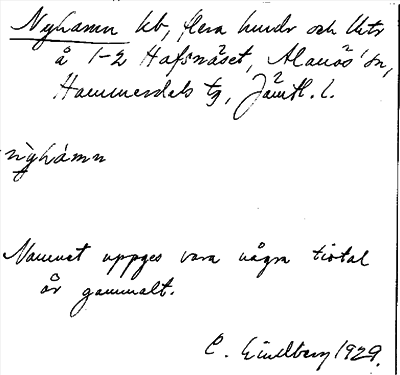 Nyhamn kb, flera hundr och
å 1-2 Hafsnäset, Alanäs sn,
Hammerdals tg, Jämtl. l.
nỳhámn
Namnet uppges vara några tiotal
år gammalt.
C. Lindberg 1929.